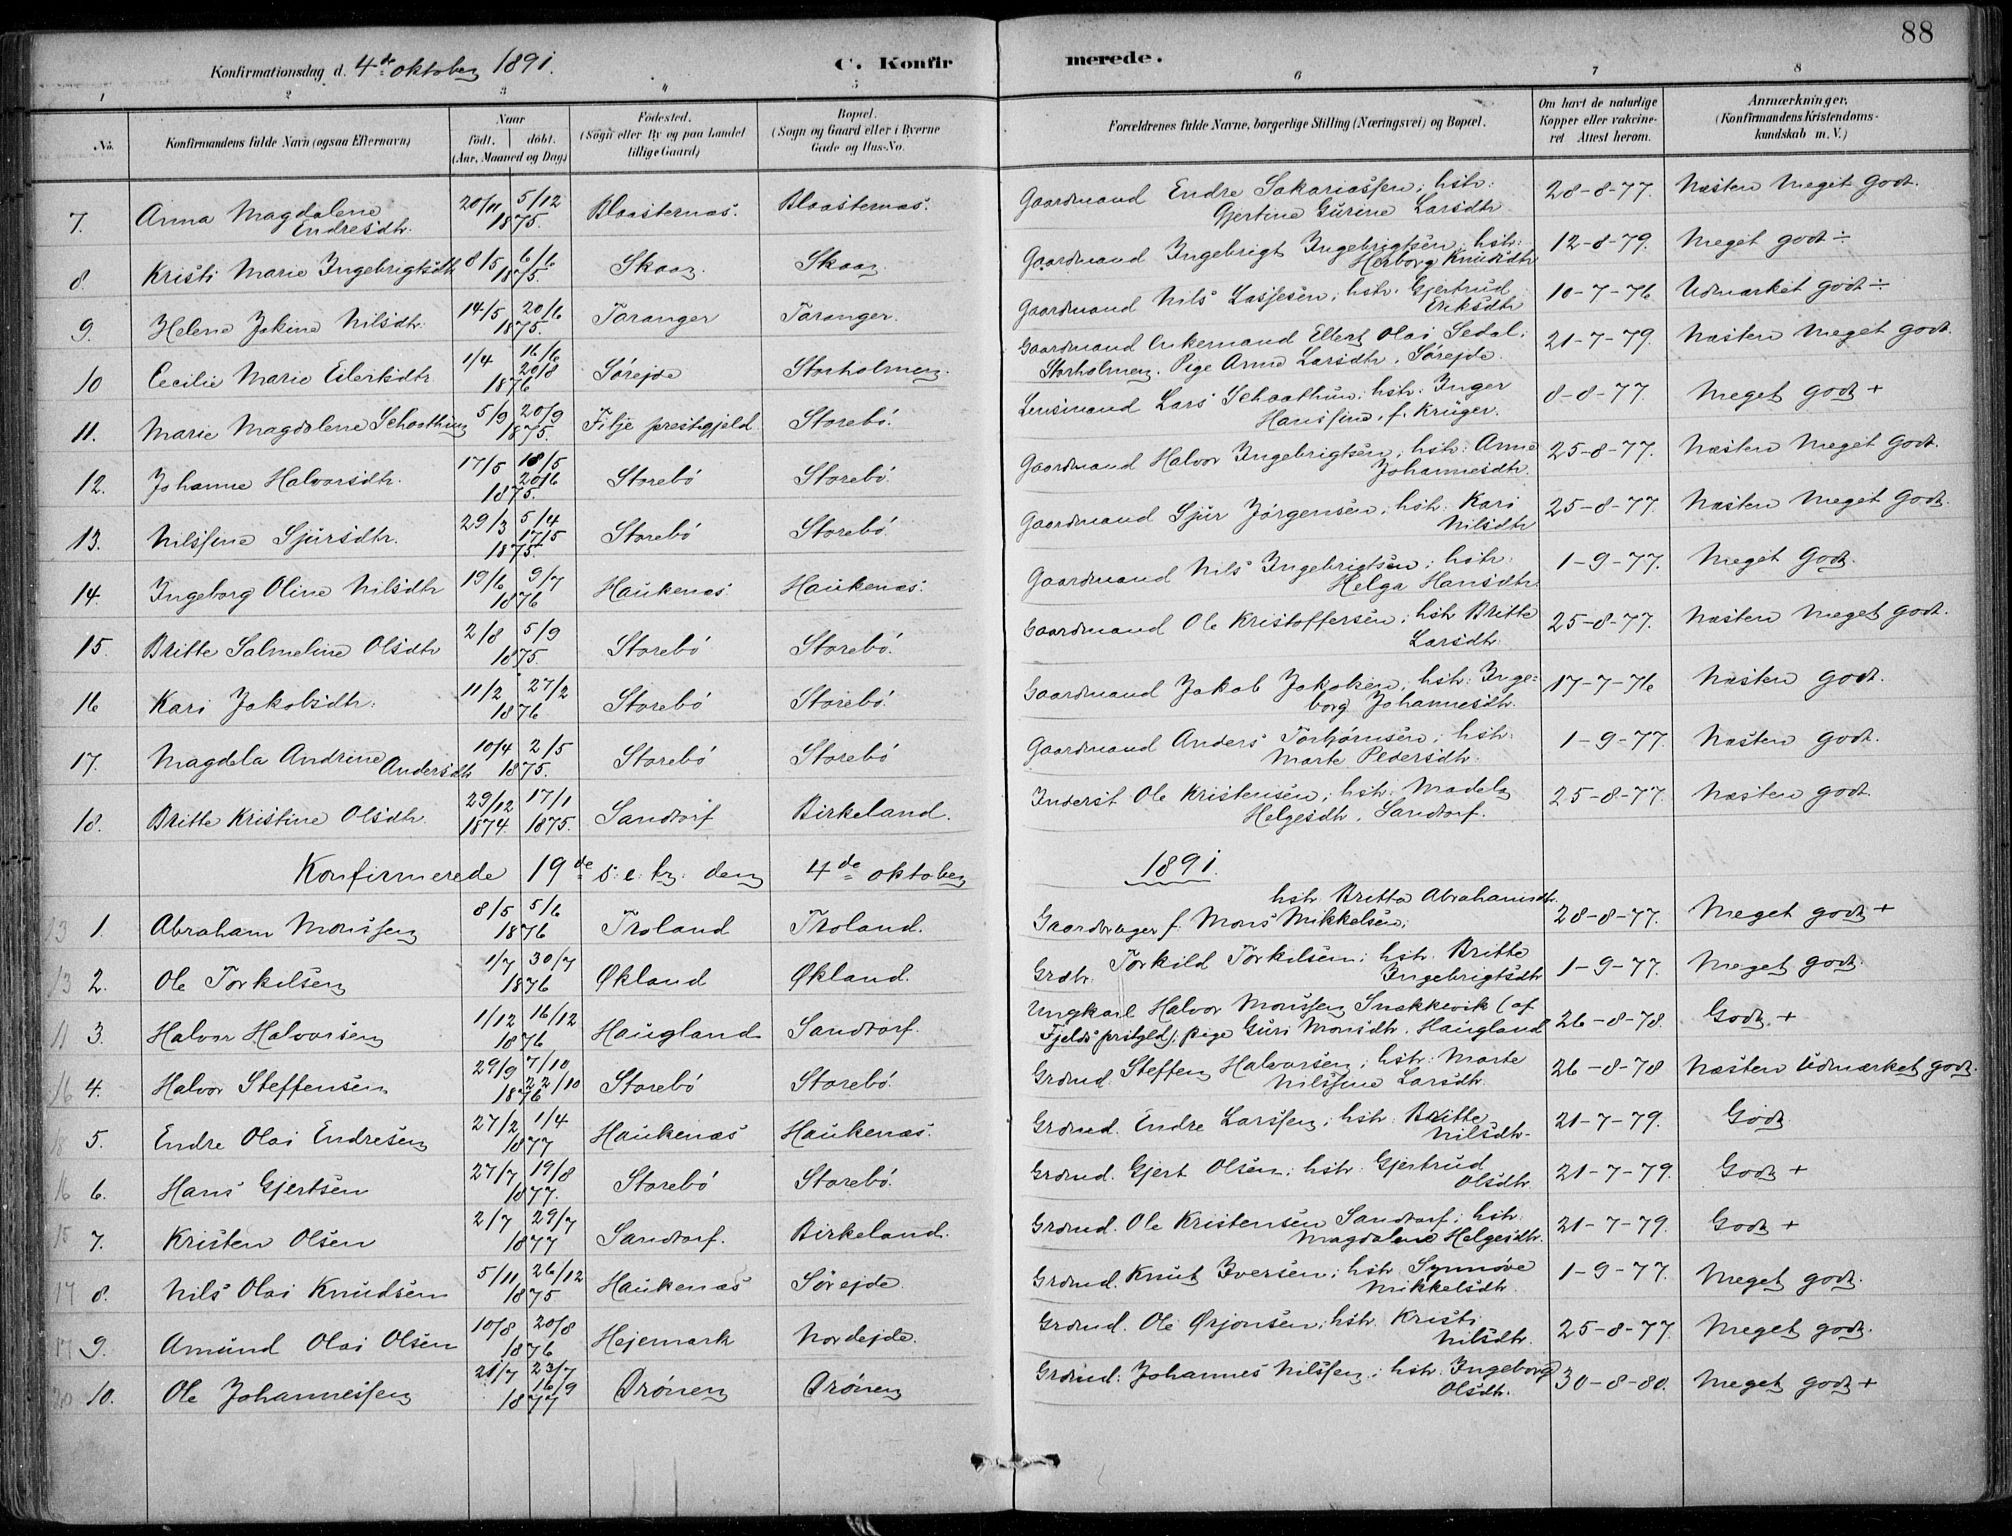 88
Konfirmationsdag d. 4de oktober 1891.
C. Konfirmerede.
1 2 3 4 5 6 7 8
No.
Konfirmandens fulde Navn (ogsaa Efternavn)
Naar
født. døbt.
(Aar, Maaned og Dag)
Fødested.
(Sogn eller By og paa Landet
tillige Gaard)
Bopæl.
(Sogn og Gaard eller i Byerne
Gade og Hus-No.
Forældrenes fulde Navne, borgerlige Stilling (Næringsvei) og Bopæl.
Om havt de naturlige
Kopper eller vakcine-
ret Attest herom.
Anmærkninger,
(Konfirmandens Kristendoms-
kundskab m. V.)
7. Anna Magdalene 20/11 5/12 Blaasternæs. Blaasternæs. Gaardmand Endre Sakariassen; hstr: 28-8-77. Næsten Meget Godt.
Endresdtr. 1875. Gjertine Gurine Larsdtr
8. Kristi Marie Ingebrigtsdtr 8/5 6/6 Skaar. Skaar. Gaardmand Ingebrigt Ingebrigtsen; hstr: 12-8-79. Meget godt ÷
1875. Herborg Knudsdtr
9. Helene Jokine Nilsdtr. 14/5 20/6 Toranger Toranger. Gaardmand Nils Lasjesen; hstr. Gjertrud 10-7-76 Udmærket godt ÷
1875. Eriksdtr
10 Cecilie Marie Eilertsdtr. 1/4 16/6 Sørejde Storholmen. Gaardmand Enkemand Ellert Olai Sedal; 21-7-79. Næsten Meget godt.
20/8
1876 Storholmen. Pige Anne Larsdtr, Sørejde.
11. Marie Magdalene Schaathun 5/9 20/9 Fitje prestegjeld. Storebö. Lensmand Lars Schaathun; hstr: Inger 8-8-77. Meget godt +
1875. Hansine, f. Krüger.
12. Johanne Halvorsdtr. 17/5 18/5 Storebö Storebö. Gaardmand Halvor Ingebrigtsen; hstr: Anne 25-8-77. Næsten Meget Godt.
20/6
1875. Johannesdtr.
13. Nilsine Sjursdtr. 29/3 5/4 Storebö Storebö. Gaardmand Sjur Jørgensen; hstr. Kari 25-8-77. Næsten Meget Godt.
17/5
1875. Nilsdtr
14. Ingeborg Oline Nilsdtr 19/6 9/7 Haukenæs Haukenæs. Gaardmand Nils Ingebrigtsen; hstr: 1-9-77. Meget Godt.
1876 Helga Hansdtr.
15. Britte Salmeline Olsdtr 2/8 5/9 Storebö Storebö. Gaardmand Ole Kristoffersen; hstr Britte 25-8-77. Næsten Meget godt.
1875. Larsdtr.
16 Kari Jakobsdtr. 11/2 27/2 Storebö Storebö. Gaardmand Jakob Jakobsen, hstr: Inge= 17-7-76 Næsten godt.
1876 borg Johannesdtr.
17. Magdela Andrine 10/4 2/5 Storebö Storebö Gaardmand Anders Torbjørnsen; hstr: 1-9-77. Næsten godt.
Andersdtr 1875. Marte Pedersdtr.
18. Britte Kristine Olsdtr. 29/12 17/1 Sandtorf Birkeland. Inderst Ole Kristensen; hstr: Madela 25-8-77. Næsten godt.
1874. 1875. Helgesdtr, Sandtorf.
Konfirmerede 19de S. e. tr. den 4de oktober 1891.
1. Abraham Monsen 8/5 5/6 Troland Troland. hstr. Britta Abrahamsdtr. 28-8-77. Meget godt +
1876 Gaardbruger f. Mons Mikkelsen;
2. Ole Torkilsen 1/7 30/7 Økland Økland. Grdbr. Torkild Torkilsen; hstr. Britte 1-9-77. Meget godt.
1876 Ingebrigtsdtr.
3. Halvor Halvorsen 1/12 16/12 Haugland Sandtorf. Ungkarl Halvor Monsen Snekkevik (af 26-8-78. Godt. +
1876 Fjelds prstgjld); pige Guri Monsdtr. Haugland
4. Halvor Steffensen 29/9 7/10 Storebö Storebö. Grdmd. Steffen Halvorsen; hstr: Marte 26-8-78 Næsten Udmærket godt.
22/10
1876 Nilsine Larsdtr.
5. Endre Olai Endresen 27/2 1/4 Haukenæs Haukenæs. Grdmd. Endre Larsen; hstr: Britte 21-7-79. Godt
1877 Nilsdtr.
6. Hans Gjertsen 27/7 19/8 Storebö Storebö. Grdmd. Gjert Olsen; hstr. Gjertrud 21-7-79. Godt +
1877. Olsdtr.
7. Kristen Olsen 2/7 29/7 Sandtorf. Birkeland. Grdmd. Ole Kristensen Sandtorf; hstr. 21-7-79. Godt +
1877 Magdalena Helgesdtr.
8. Nils Olai Knudsen 5/11 26/12 Haukenæs Sørejde. Grdmd. Knut Iversen; hstr. Synnøve 1-9-77. Meget godt.
1875 Mikkelsdtr.
9. Amund Olai Olsen 10/8 20/8 Hejemark Nordejde. Grdmd. Ole Ørjonsen; hstr. Kristi 25-8-77. Meget godt.
1876 Nilsdtr.
10. Ole Johannessen 21/7 23/7 Drönen Drönen Grdmd. Johannes Nilsen; hstr. Ingeborg 30-8-80. Meget godt +
16/9
1877 Olsdtr.